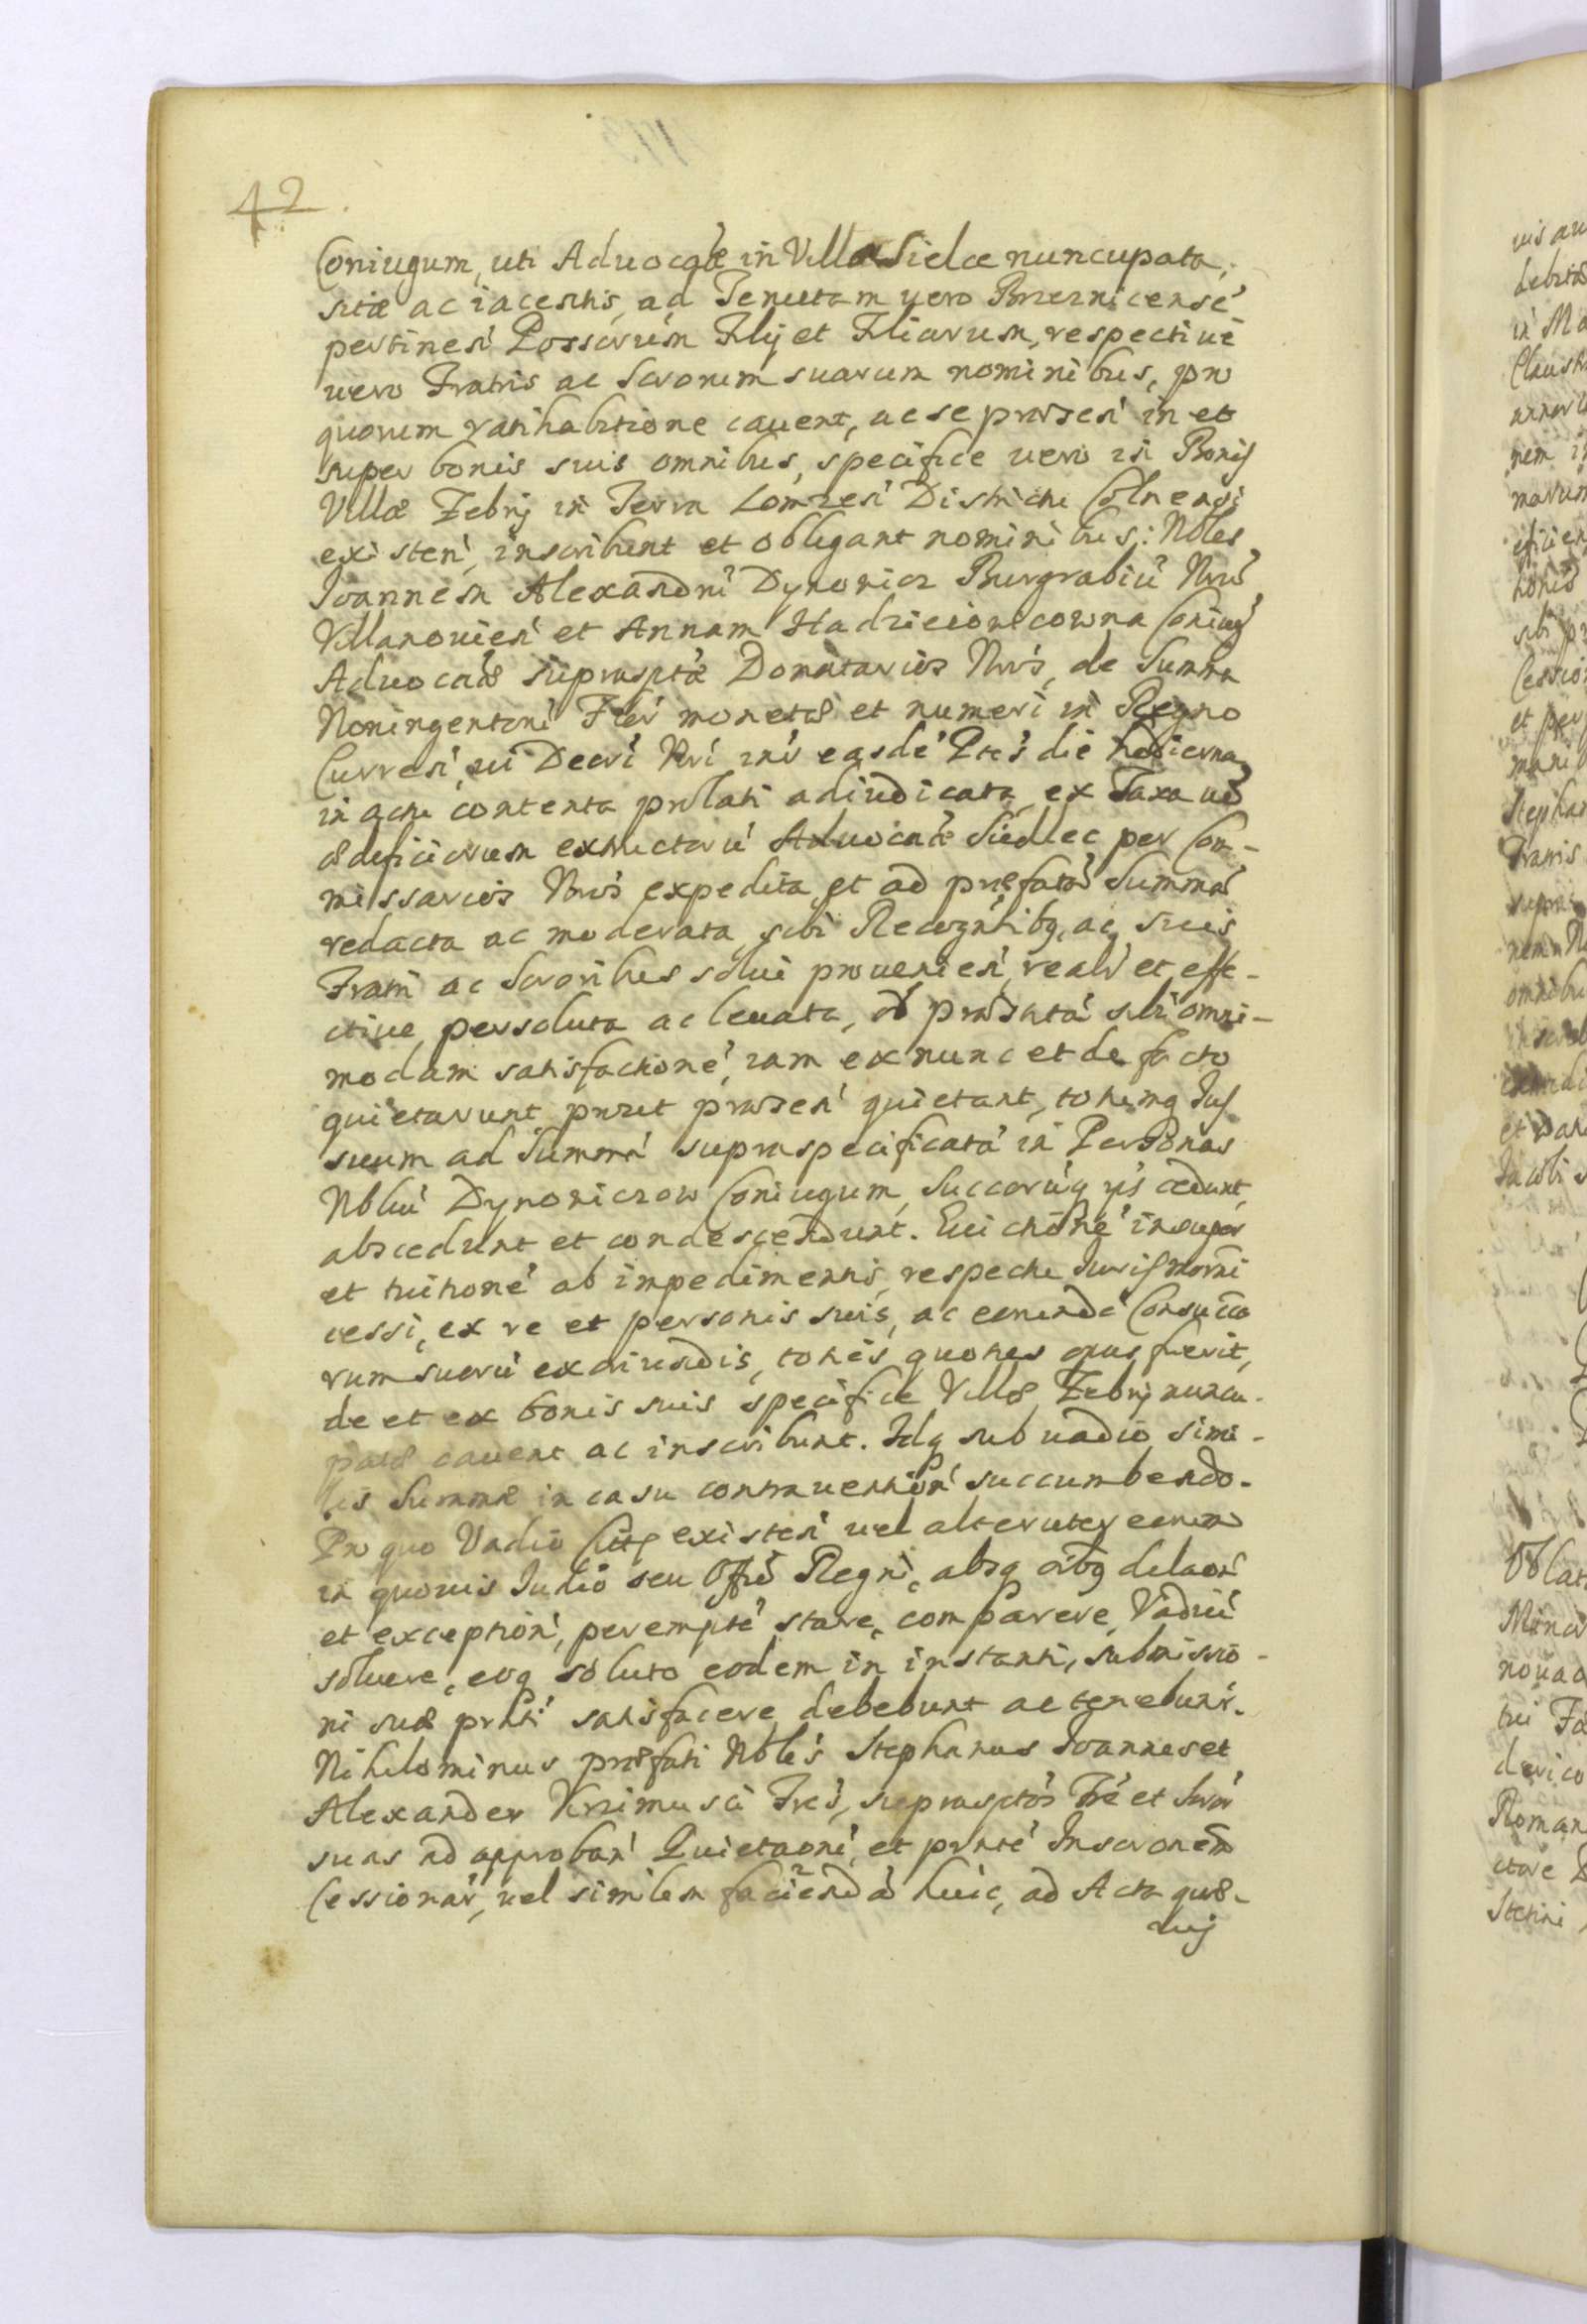 42
Coniugum, uti Aduocatæ in Villa Sielce nuncupata,
sitæ ac iacentis, ad Tenutam vero Brzeznicensé
pertinen' Possorúm Filij et Filiarum, respectiué
uero Fratris ac Sororum suarum nominibus, pro
quorum ratihabitione cauent, ac se præsen' in et
super bonis suis omnibus, specifice uero in Bonis
Villæ Zebrij in Terra Lomzen' Districtu Colnensi
existen', inscribunt et obligant nominibus: Nobles
Joannem Alexandrú Dynowicz Burgrabiú Nrú
Villanouien' et Annam Hadzieiowicowna Coniug'
Aduocatiæ suprasptæ Donatarios Nros, de Summa
Noningentorú Flor' monetæ et numeri in Regno
Curren', ui Decri Nri int' easdé Ptes die hodierna
in actu contenta prolati adiudicata, ex Taxa uó
ædificiorum extructorú Aduocatiæ Siedlec per Com-
missarios Nros expedita, et ad præfatá Summá
redacta ac moderata, sibi Recogntibq, ac suis
Fratri ac Sororibus solui prouenien', realr et effe-
ctiue persoluta ac leuata, ob præstatá sibi omni-
modam satisfactioné, iam ex nunc et de facto
quietarunt prout præsen' quietant, totumq Jus
suum ad Summá supraspecificatá in Personas
Nbliú Dynowiczow Coniugum, Succorúq ips' cedunt,
abscedunt et condescendunt. Euictioné insuper
et tuitioné ab impedimentis, respectu Juris
cessi, ex re et personis suis, ac eorundé Consucco
rum suorú exoriundis, toties quoties opus fuerit,
de et ex bonis suis specifice Villæ Zebrij nuncu-
patæ cauent ac inscribunt. Idq sub uadio simi-
lis Summæ in casu contrauention' succumbendo.
Pro quo Vadio Citti existen' uel alteruter eorum
in quouis Judio seu Offio Regni, absq oibq delaoni
et exception', perempté stare, comparere, Vadiú
soluere, eoq soluto eodem in instanti, submissio-
ni suæ prnti satisfacere debebunt ac tenebunr.
Nihilominus præfati Nobles Stephanus Joannes et
Alexander Krzimusci Fres, suprasptos Fré et Soror'
suas ad approban' Quietaoné, et prnté Inscronem
Cessionar', uel similem faciendá huic, ad Acta quæ-
uij